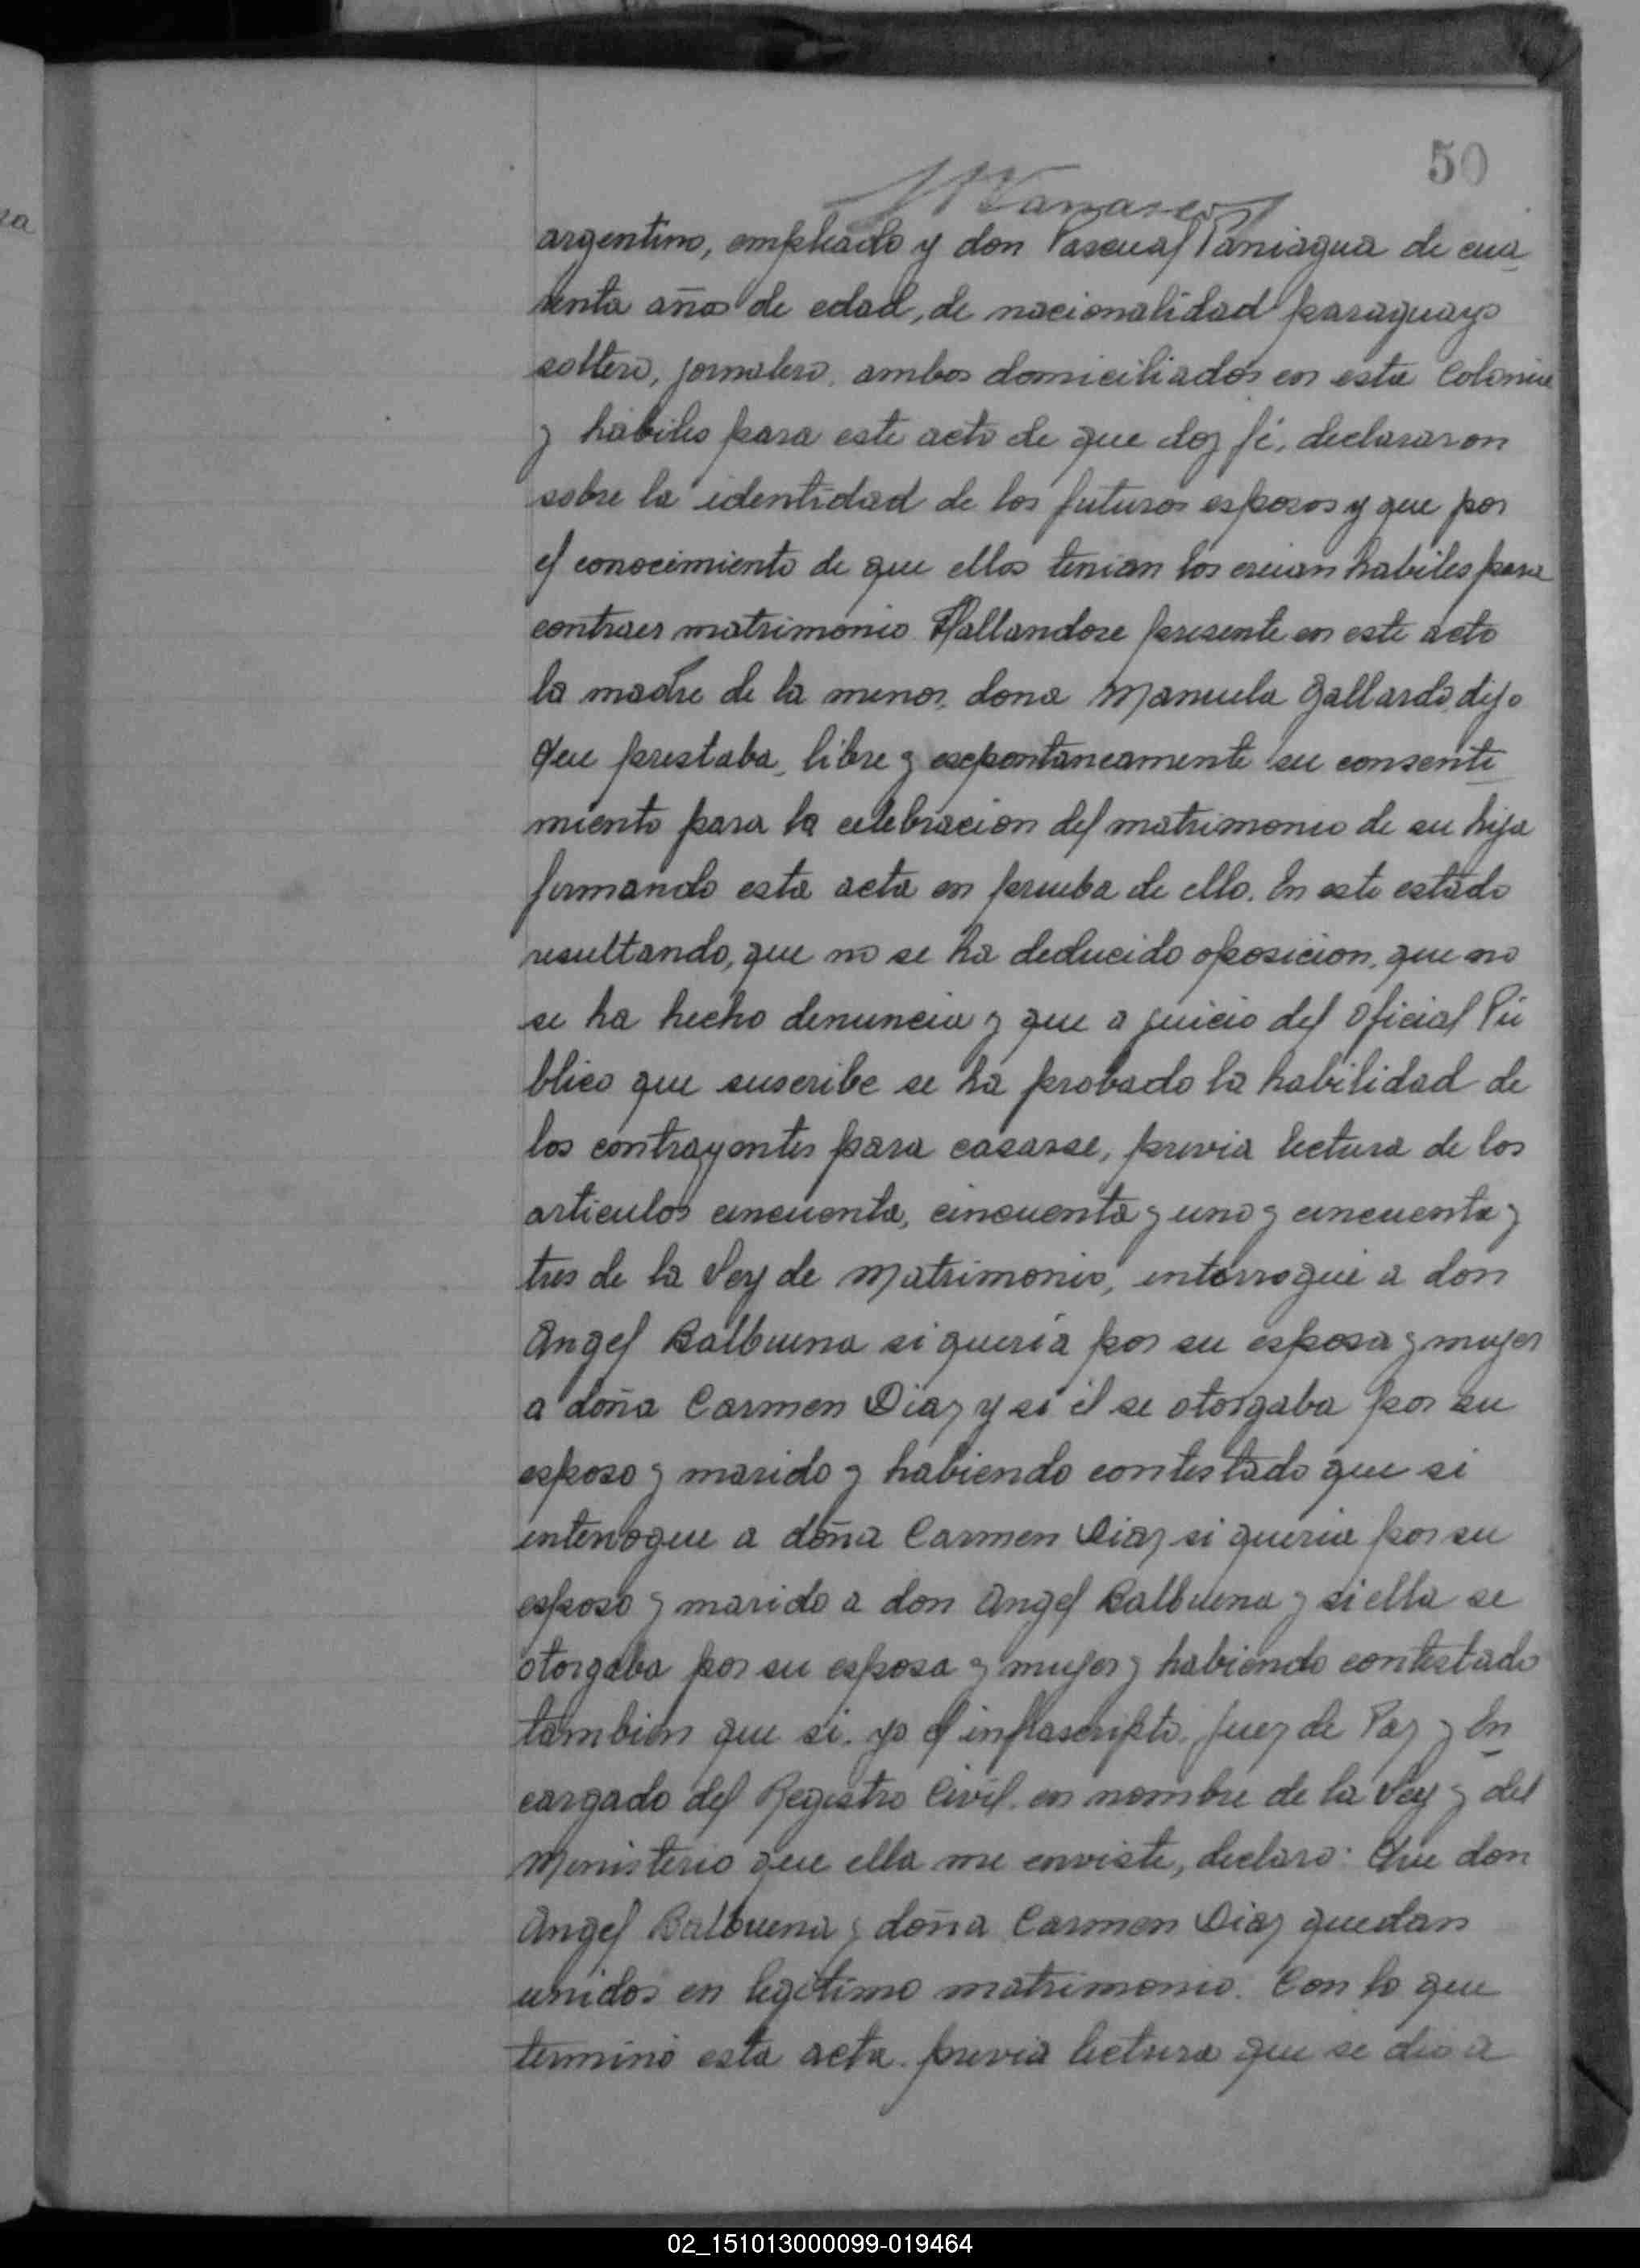 50
argentino, empleado y don Pascual Paniagua de cua
renta años de edad, de nacionalidad paraguayo
soltero, jornalero, ambos domiciliados en esta Colonia
y habiles para este acto de que doy fé, declararon
sobre la identidad de los futuros esposos y que por
el conocimiento de que ellos tenian los creian habiles para
contraer matrimonio. Hallandose presente en este acto
la madre de la menor, dona Manuela Gallardo, dijo
Que prestaba, libre y espontaneamente su consenti
miento para la celebracion del matrimonio de su hija
firmando esta acta en prueba de ello. En este estado
resultando, que no se ha deducido oposicion, que no
se ha hecho denuncia y que a juicio del Oficial Pú
blico que suscribe se ha probado la habilidad de
los contrayentes para casarse, previa lectura de los
articulos cincuenta, cincuenta y uno y cincuenta y
tres de la Ley de Matrimonio, interrogué a don
Angel Balbuena si queria por su esposa y mujer
a doña Carmen Diaz y si él se otorgaba por su
esposo y marido y habiendo contestado que si
interrogue a doña Carmen Diaz si queria por su
esposo y marido a don Angel Balbuena y si ella se
otorgaba por su esposa y mujer y habiendo contestado
tambien que si. yo el infrascripto, Juez de Paz y En
cargado del Registro Civil, en nombre de la Ley y del
Ministerio que ella me enviste, declaro: Que don
Angel Balbuena y doña Carmen Diaz quedan
unidos en legitimo matrimonio. Con lo que
terminó esta acta. previa lectura que se dió a
02_151013000099-019464